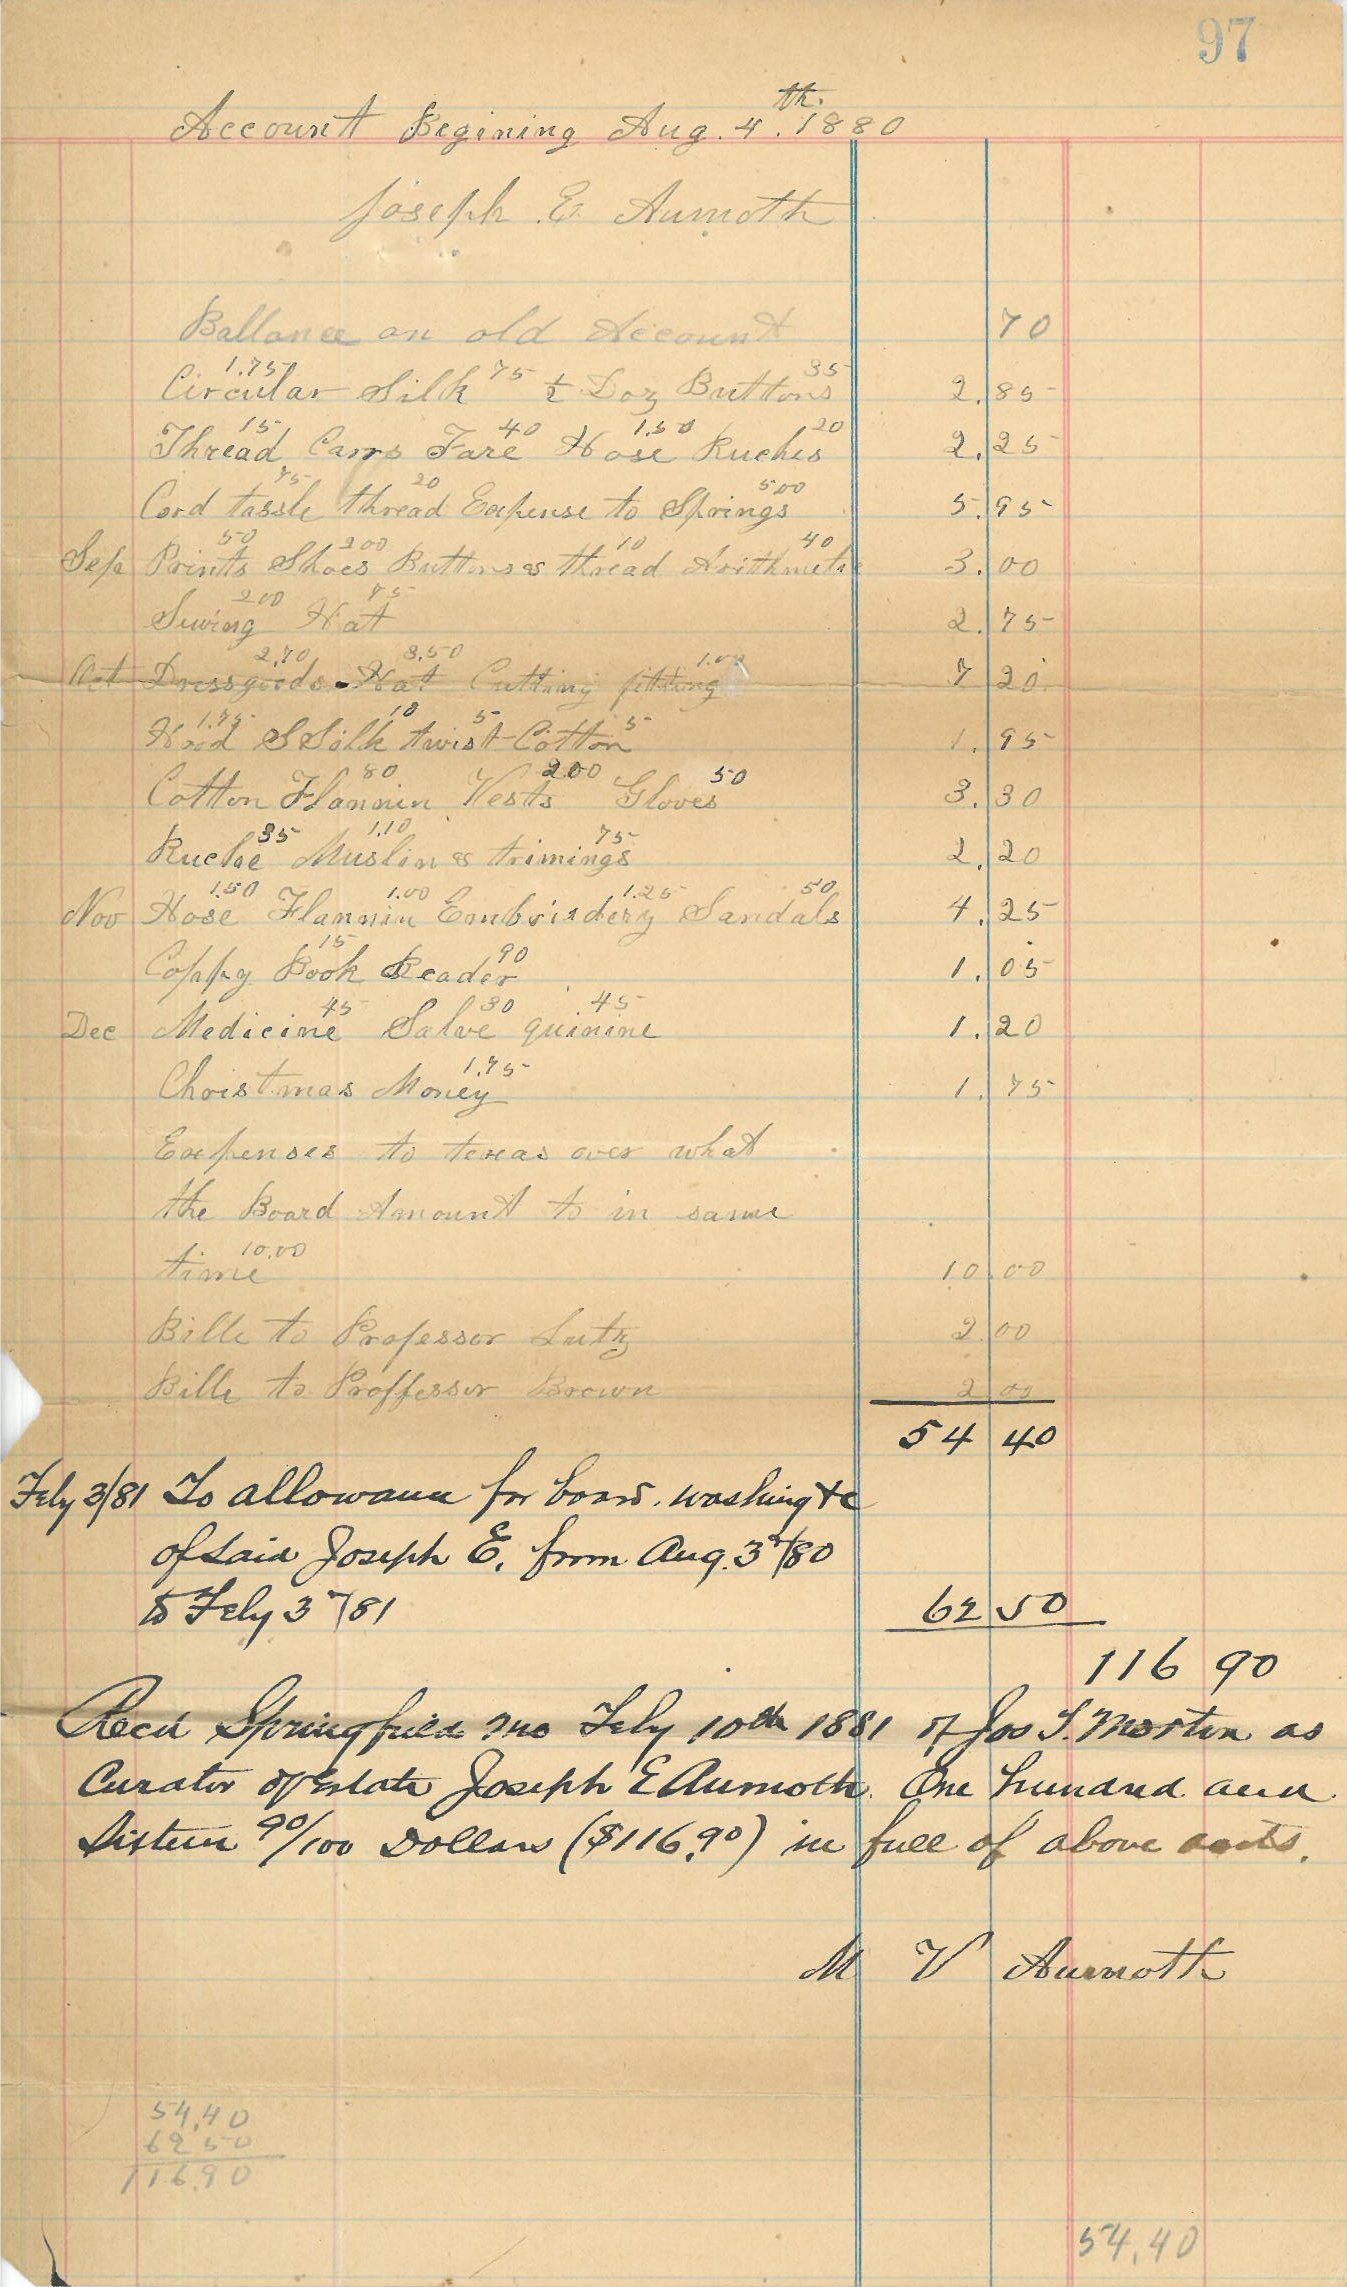 97
Account Begining Aug. 4th. 1880
Joseph E Aumoth
Ballance on old Account 70
1.75 75 35
Circular Silk ½ Doz Buttons 2.85
15 40 1.50 20
Thread Carrs Fare Hose Ruches 2.25
75 20 500
Cord tassle thread Expense to Springs 5.95
50 200 10 40
Sep Prints Shoes Buttons & thread Arithmetic 3.00
200 75
Suwing Hat 2.75
2.70 3.50 1.00
Oct Dressgoods - Hat Cutting fitting 7 20
1.75 10 5 5
Hood S Silk twist Cotton 1.95
80 200 50
Cotton Flannin Vests Gloves 3.30
35 1.10 75
Ruche Muslin & trimings 2.20
1.50 1.00 1.25 50
Nov Hose Flannin Embroidery Sandals 4.25
15 90
Coppy Book Reader 1.05
45 30 45
Dec Medicine Salve quinine 1.20
1.75
Christmas Money 1.75
Expenses to texas over what
the Board Amount to in same
10.00
time 10.00
Bille to Professor Lutz 2.00
Bille to Proffessor Brown 2 00
54 40
Feby 3/81 To allowance for board. washing &c
of said Joseph E. from Aug. 3d/80
to Feby 3d/81 62 50
116 90
Recd Springfield Mo Feby 10th 1881 of Jos T. Morton as
Curator of Estate Joseph E Aumoth. One hundred and
Sixteen 90/100 Dollars ($116.90) in full of above accts.
M V Aumoth
54.40
62 50
116.90
54.40